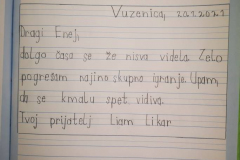 Vuzenica, 20.1.2021
Dragi Enej,
dolgo časa se že nisva videla Zelo
pogrešam najino skupno igranje. Upam,
da se kmalu spet vidiva.
Tvoj prijatelj Liam Likar